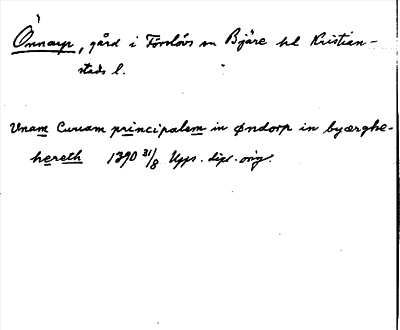 Önnarp, gård i Förslövs sn Bjäre hd Kristian-
stads l.
Unam Curiam principalem in Øndorp in byærghe-
hereth 1390 31/8 Upps. dipl. orig.